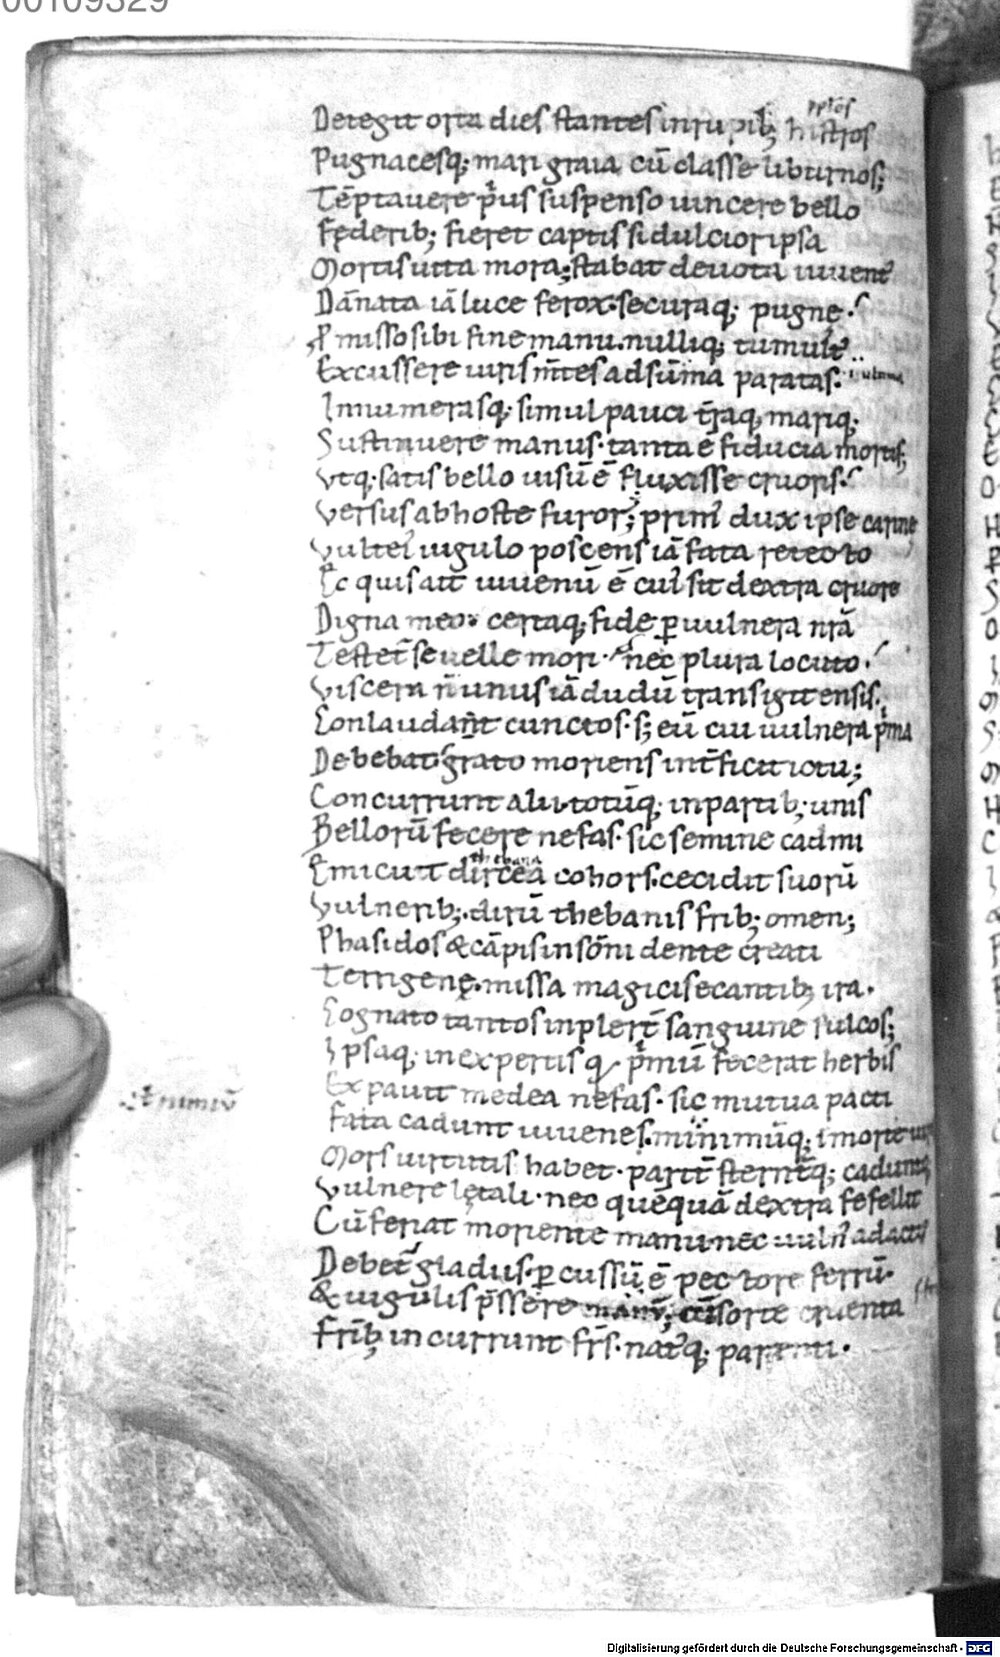 00109329
pplōs
Detegit orta dies stantes in rupib; histros
Pugnacesq; mari graia cū classe liburnos;
Tēptauere p̄us suspenso uincere bello
Federib; fieret captis si dulcior ipsa
Mortis uita mora; stabat deuota iuuent᷑
Dānata iā luce ferox. securaq; pugne.
P̄misso sibi fine manu. nulliq; tumult᷑
Excussere uiris m̄tes ad sūma paratas.
Innumerasq; simul pauci t̄raq; mariq;
Sustinuere manus. tanta ē fiducia mortis;
Vtq; satis bello uisū ē fluxisse cruoris.
Versus ab hoste furor; prim᷑ dux ipse carine
Vultei᷑ iugulo poscens iā fata retecto
Ec quis ait iuuenū ē cui᷑ sit dextra cruore
Digna meo. certaq; fide p uulnera nr̄a
Testet᷑ se uelle mori. nec plura locuto.
Viscera n̄ unus iā dudū transigit ensis.
Conlaudant cunctos. s; eū cui uulnera p̄ma
Debebat grato moriens int̄ficit ictu;
Concurrunt alii. totūq; in partib; unis
Bellorū fecere nefas. sic semine cadmi
thebana
Emicuit dircea cohors. cecidit suorū
Vulnerib;. dirū thebanis frib; omen;
Phasidos & cāpis insōni dente creati
Terrigenę. missa magicis e cantib; ira.
Cognato tantos inplert̄ sanguine sulcos;
Ipsaq; inexpertis q̄ p̄mū fecerat herbis
Expauit medea nefas. sic mutua pacti
Fata cadunt iuuenes. minimūq; i morte
Mors uirtutis habet. parit̄ sternt̄q; cadunt
Vulnere lętali. nec quēquā dextra fefellit
Cū feriat moriente manu. nec uuln᷑ adacti
Debet᷑ gladiis. pcussū ē pectore ferrū.
& iugulis p̄ssere manū; cū sorte cruenta
Frib; incurrunt fr̄s. nat᷑q; parenti.
Digitalisierung gefördert durch die Deutsche Forschungsgemeinschaft - DFG